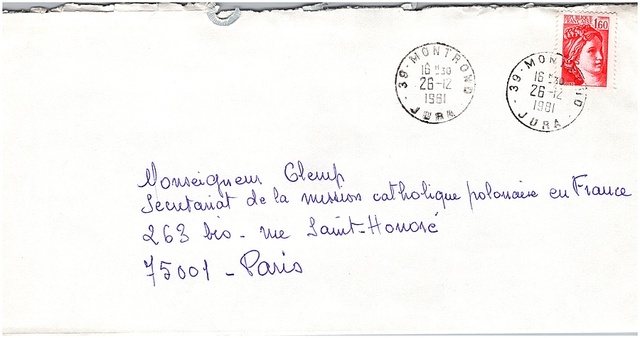 RÉPUBLIQUE
FRANÇAISE
1,60
39 - MONTROND
16 H30
26-12
1981
JURA
39 - MONTROND
16 H30
26-12
1981
JURA
Monseigneur Glemp
Secretariat de la mission catholique polonaise en France
263 bis - rue Saint-Honoré
75001 - Paris